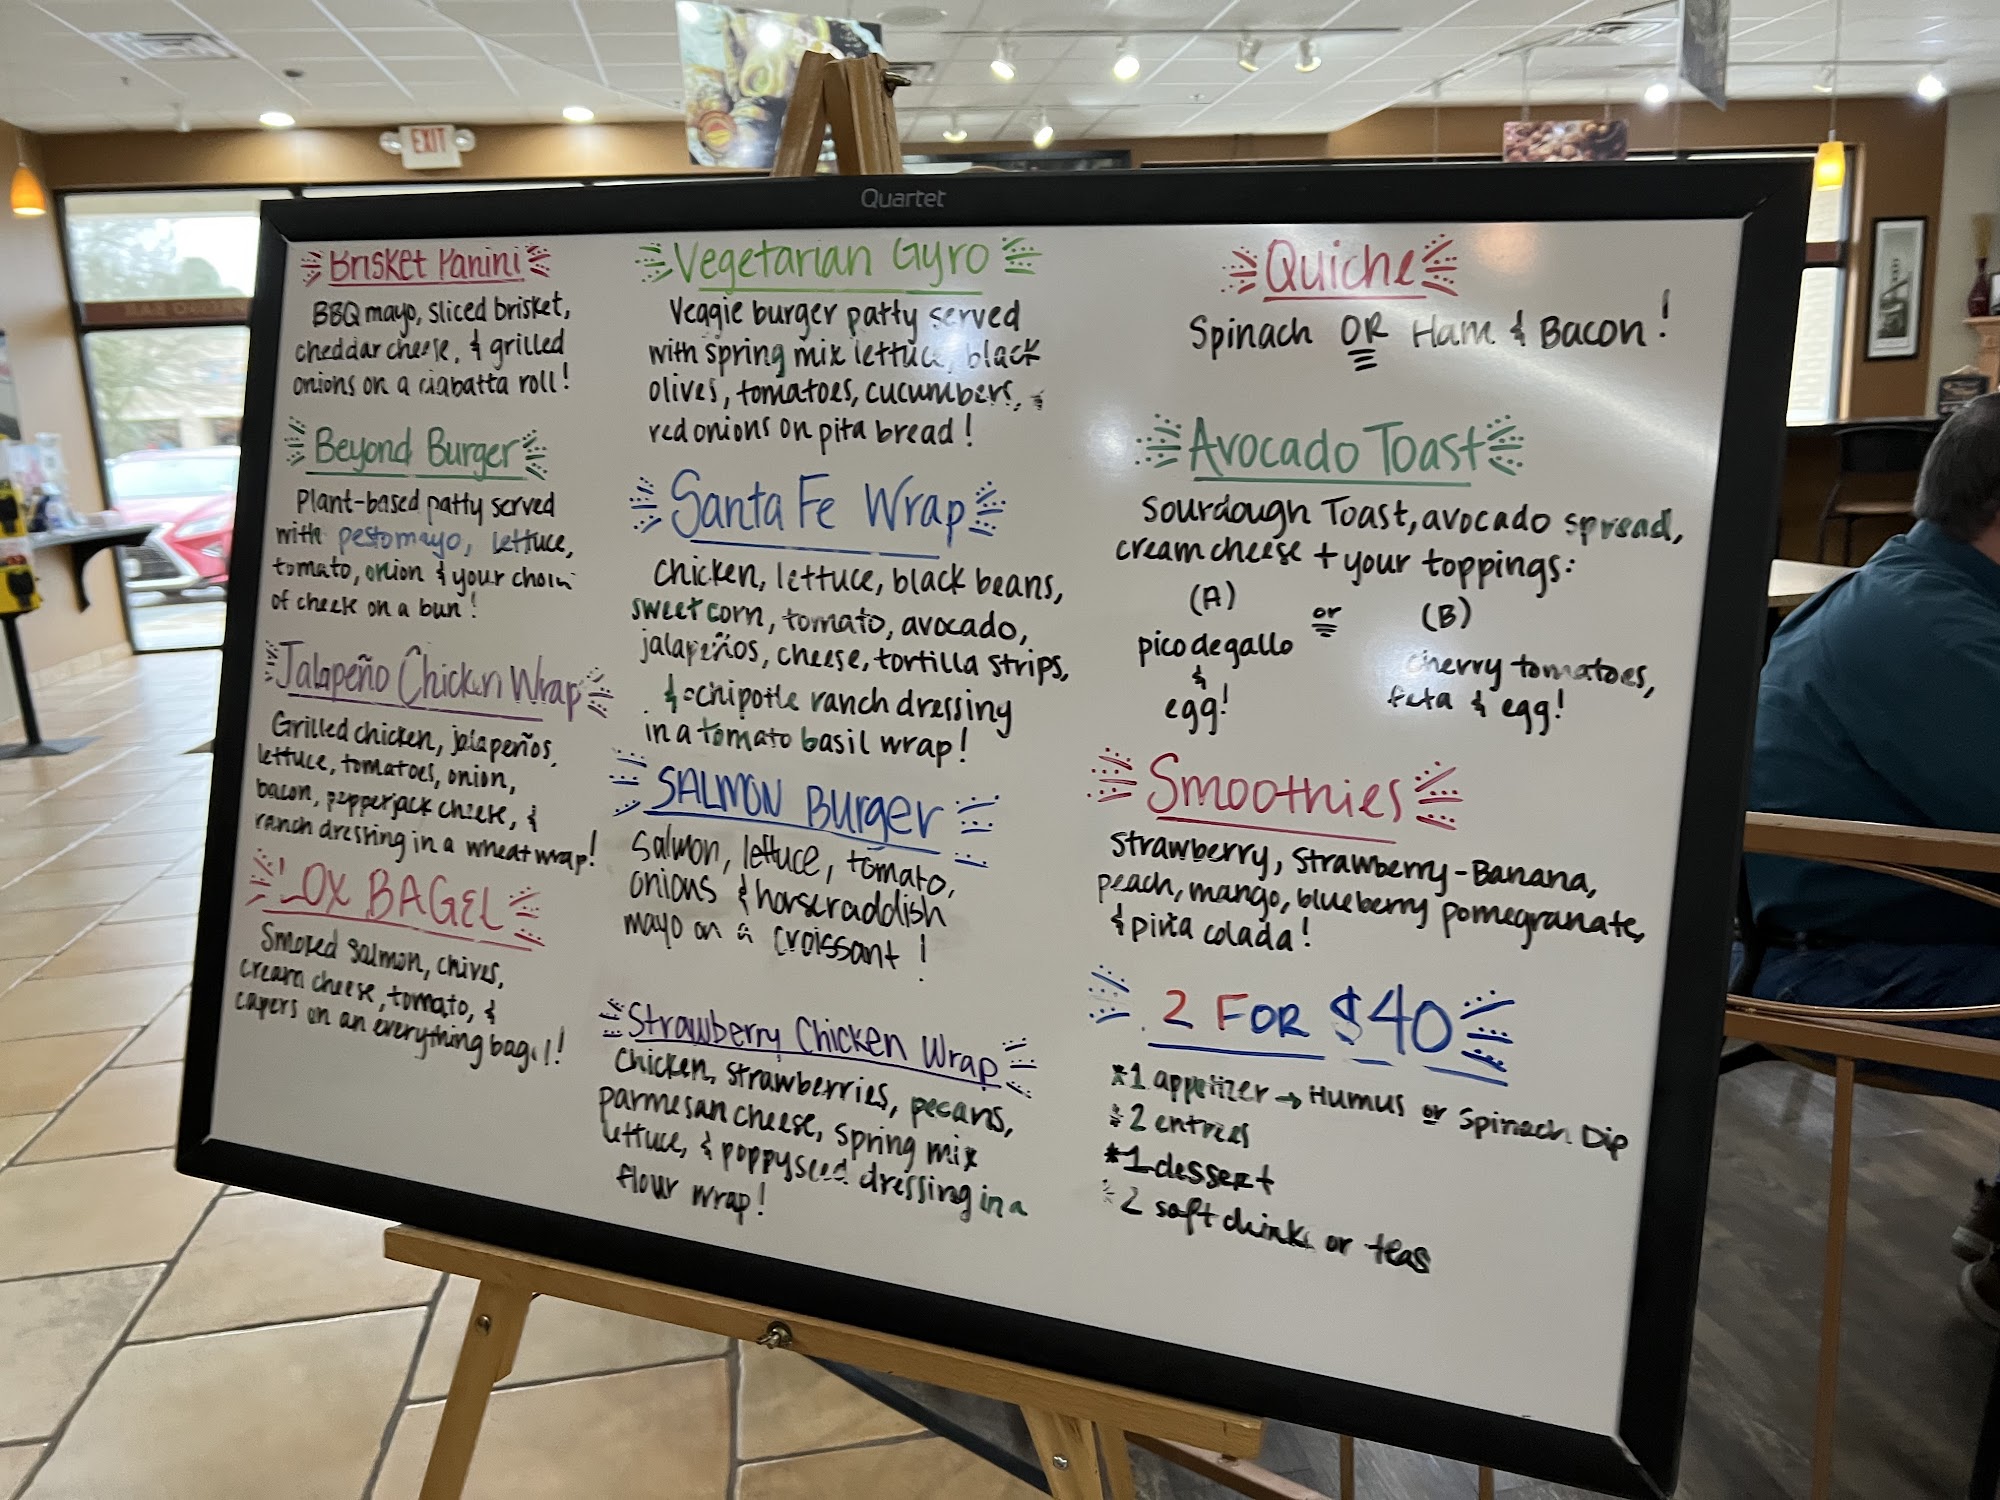 EXIT
Quartet
Brisket Panini
BBQ mayo, sliced brisket,
cheddar cheese, & grilled
onions on a ciabatta roll!
Beyond Burger
Plant-based patty served
with pesto mayo, lettuce,
tomato, onion & your choin
of cheek on a bun!
Jalapeño Chicken Wrap
Grilled chicken, jalapeños,
lettuce, tomatoes, onion,
bacon, pepperjack cheese, &
ranch dressing in a wheat wrap!
LOX BAGEL
Smoked salmon, chives,
cream cheese, tomato, &
capers on an everything bagel!
Vegetarian Gyro
Veggie burger patty served
with spring mix lettuce, black
olives, tomatoes, cucumbers, &
red onions on pita bread!
Santa Fe Wrap
Chicken, lettuce, black beans,
sweet corn, tomato, avocado,
jalapeños, cheese, tortilla strips,
& chipotle ranch dressing
in a tomato basil wrap!
SALMON Burger
Salmon, lettuce, tomato,
onions & horseraddish
mayo on a croissant!
Strawberry Chicken Wrap
Chicken, strawberries, pecans,
parmesan cheese, spring mix
lettuce, & poppyseed dressing in a
flour wrap!
Quiche
Spinach OR Ham & Bacon!
Avocado Toast
Sourdough Toast, avocado spread,
cream cheese + your toppings:
(A) or (B)
pico de gallo
&
egg!
cherry tomatoes,
feta & egg!
Smoothies
Strawberry, Strawberry-Banana,
peach, mango, blueberry pomegranate,
& piña colada!
2 FOR $40
*1 appetizer → Humus or Spinach Dip
*2 entries
*1 dessert
*2 soft drinks or teas